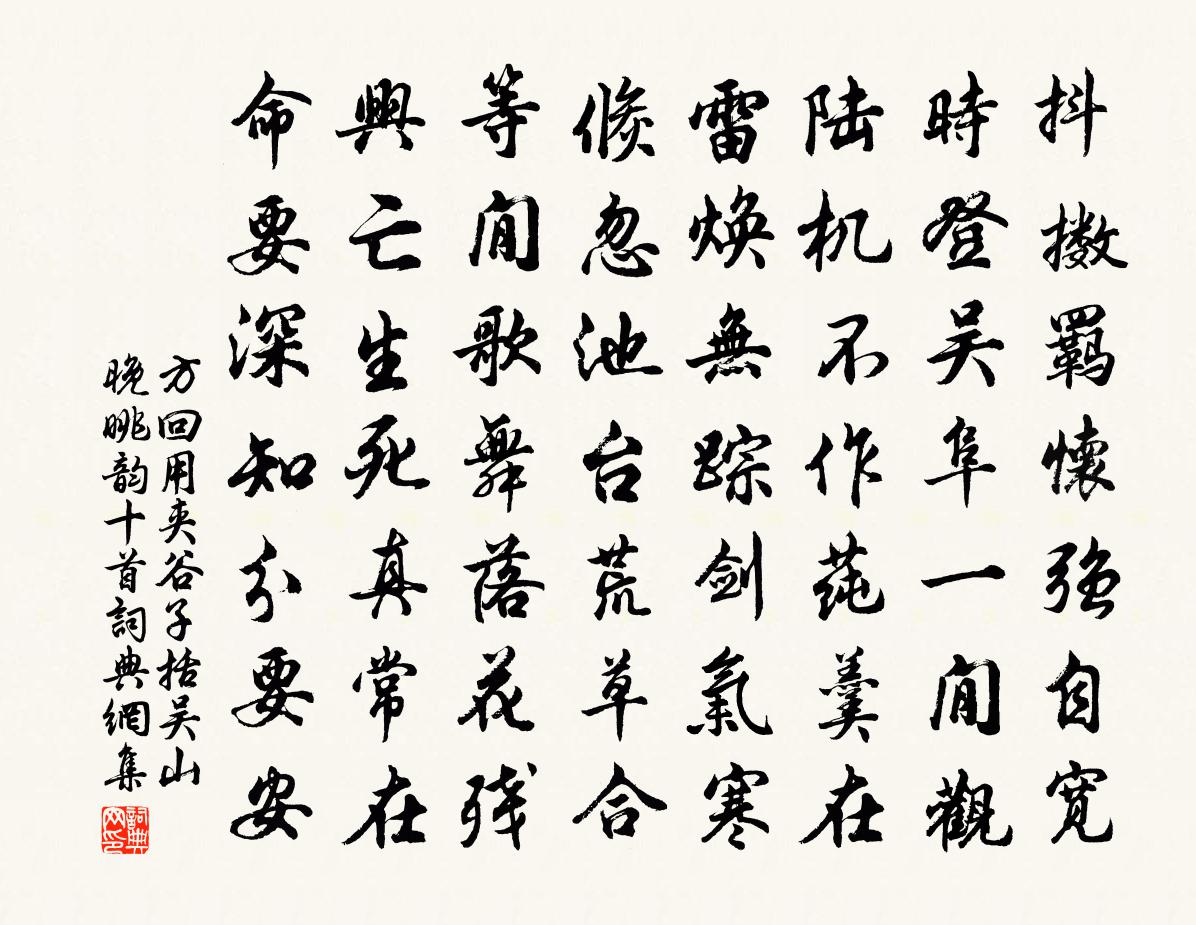 抖擞羈懷强自寛
時登吴阜一閒觀
陆机不作莼羹在
雷焕無踪劍氣寒
倏忽池台荒草合
等閒歌舞落花残
興亡生死真常在
命要深知分要安
方回用夹谷子括吴山
晚眺韵十首詞典網集
詞典網印